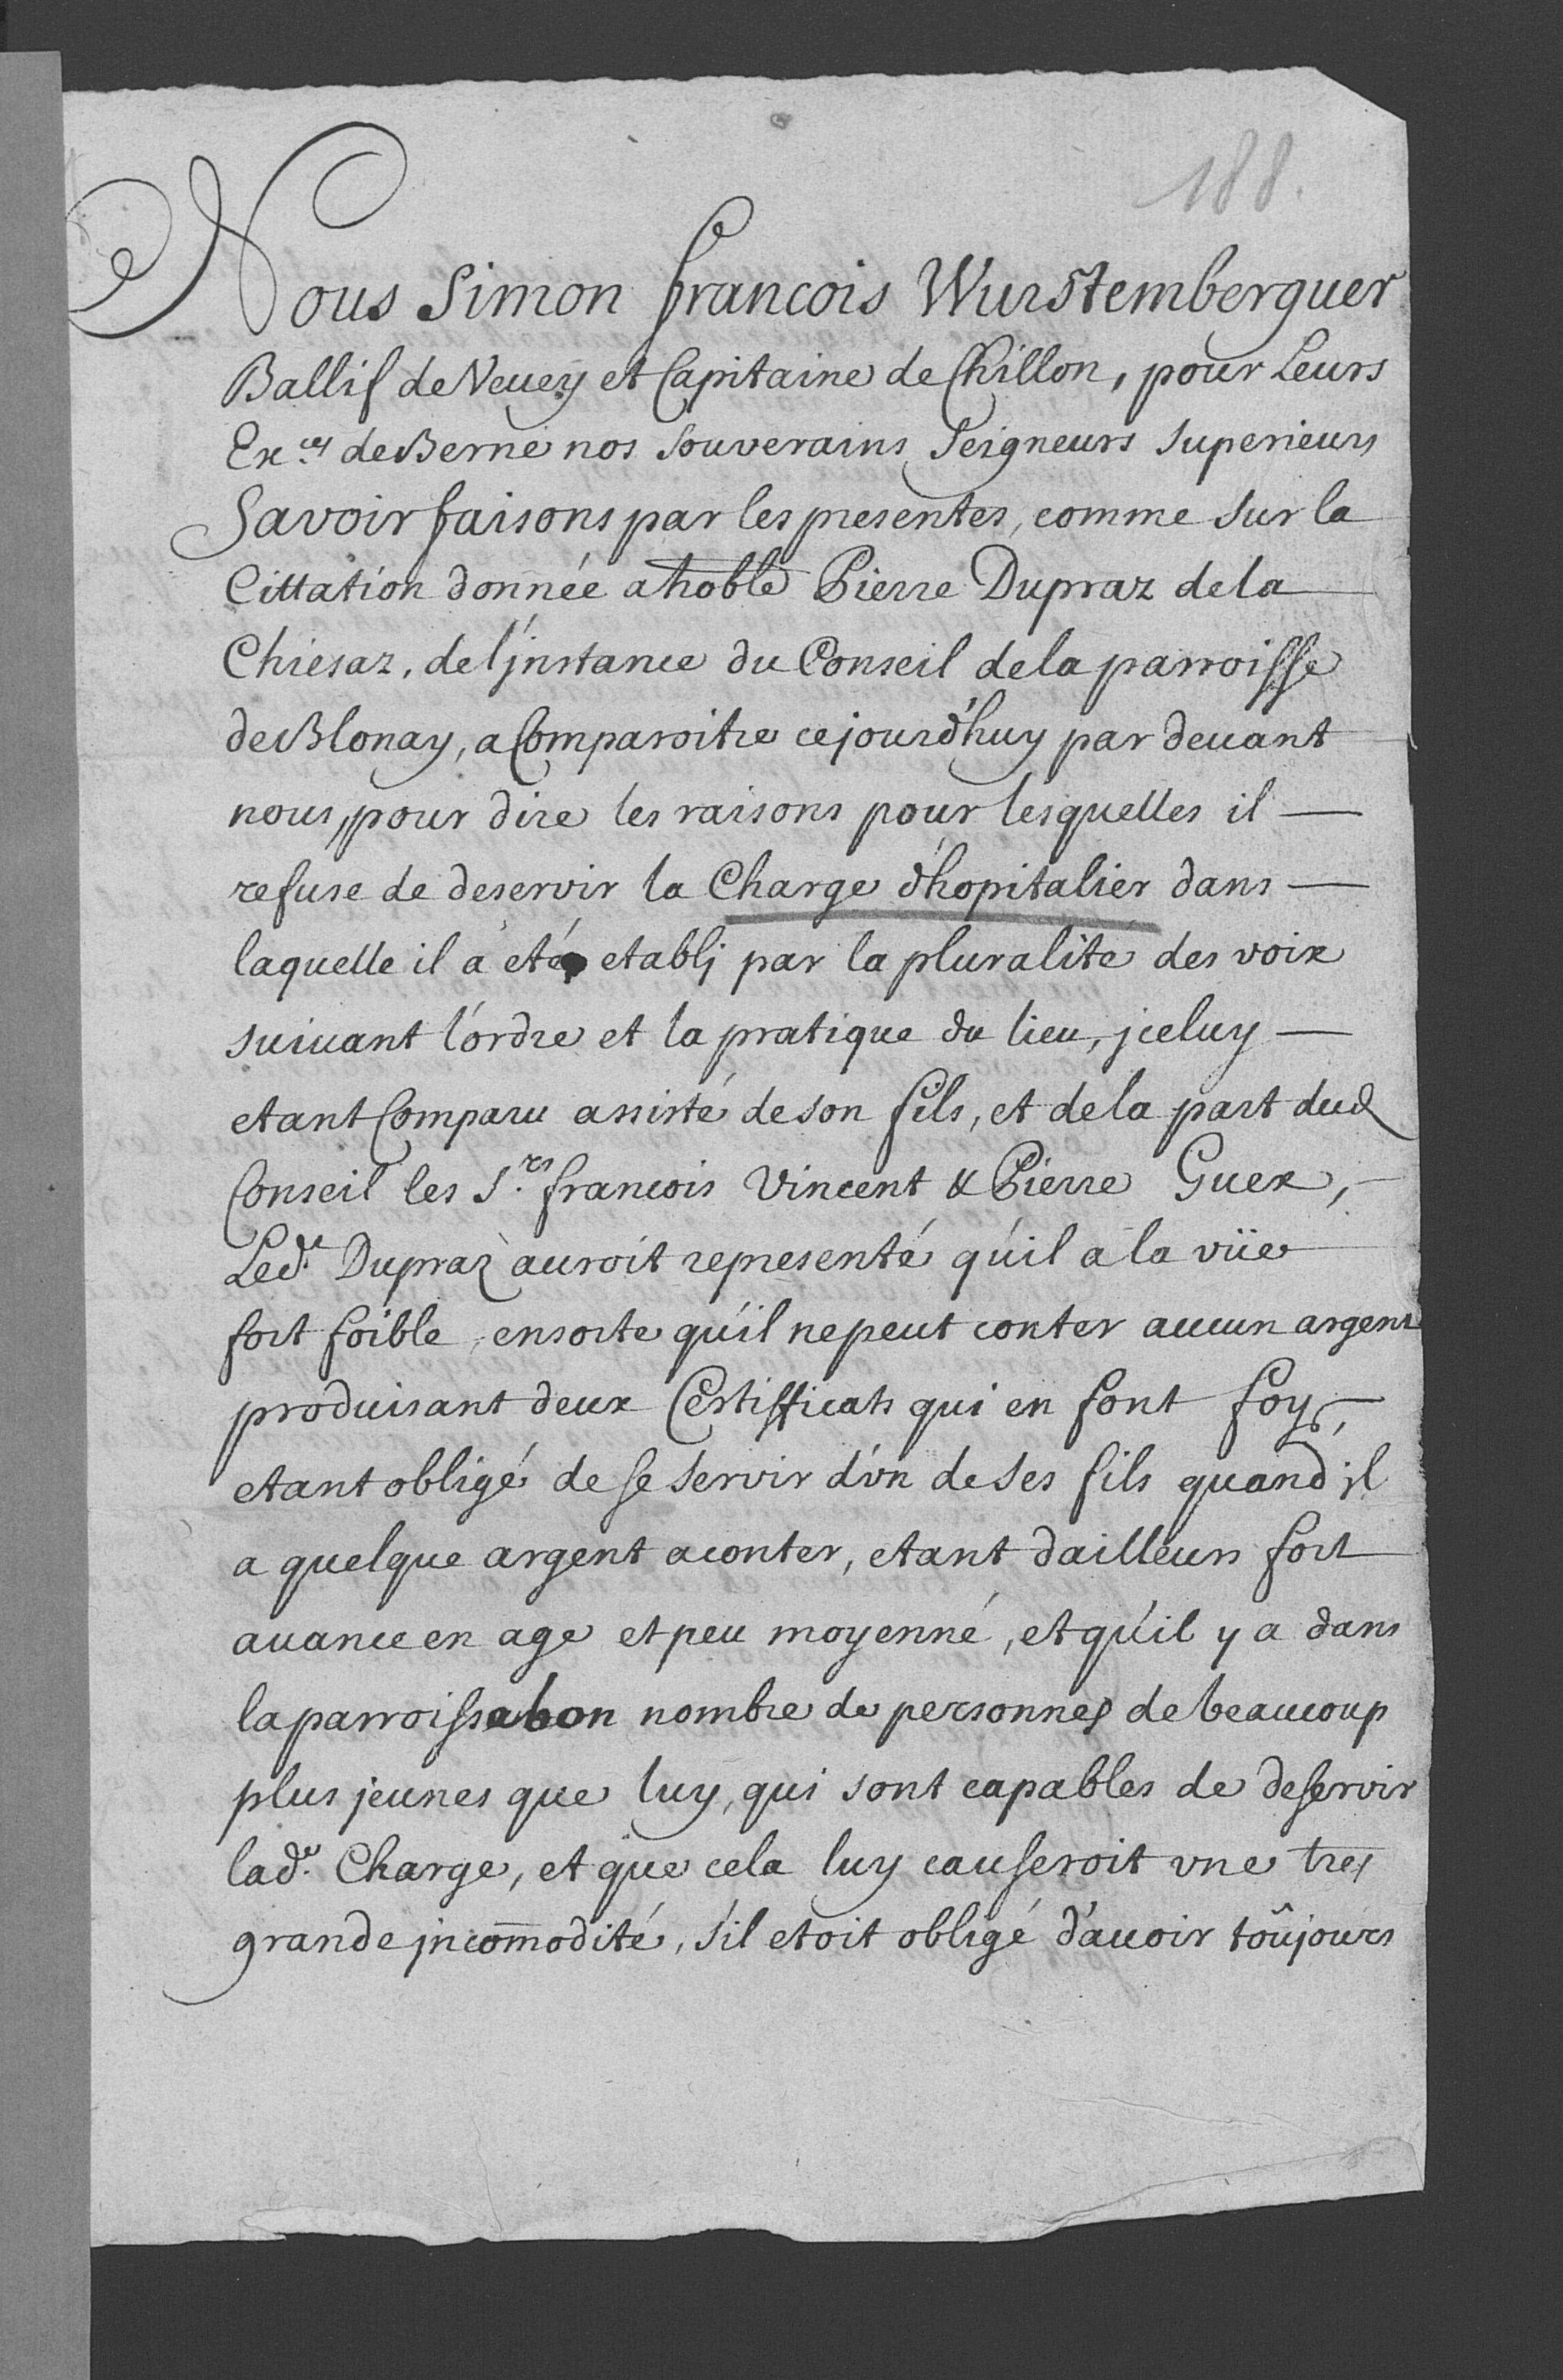 188.
Nous Simon francois Wurstemberguer
Ballif de Veuey et Capitaine de Chillon, pour Leurs
Ex.ces de Berne nos Souverains Seigneurs superieurs
Savoir faisons par les presentes, comme sur la
Cittation donnée a hoble Pierre Dupraz de la
Chiesaz, de l'jnstance du Conseil de la parroisse
de Blonay, a Comparoitre cejourd'huy par deuant
nous, pour dire les raisons pour lesquelles il —
refuse de deservir la Charge d'hopitalier dans —
laquelle il a eté etablj par la pluralite des voix
suiuant l'ordre et la pratique du lieu, jceluy —
etant Comparu assisté de son fils, et de la part dud
Conseil les S.rs francois Vincent & Pierre Guex, -
Led.t Dupraz auroit representé qu'il a la vüe
fort foible, ensorte qu'il ne peut conter aucun argent
produisant deux Certifficats qui en font foy, -
etant obligé de se servir d'vn de ses fils quand jl
a quelque argent a conter, etant dailleurs fort
auance en age et peu moyenné, et qu'il y a dans
la parroisse bon nombre de personnes de beaucoup
plus jeunes que luy, qui sont capables de deservir
lad.e Charge, et que cela luy causeroit vne tres
grande jncom̄odité, s'il etoit obligé d'auoir toûjours